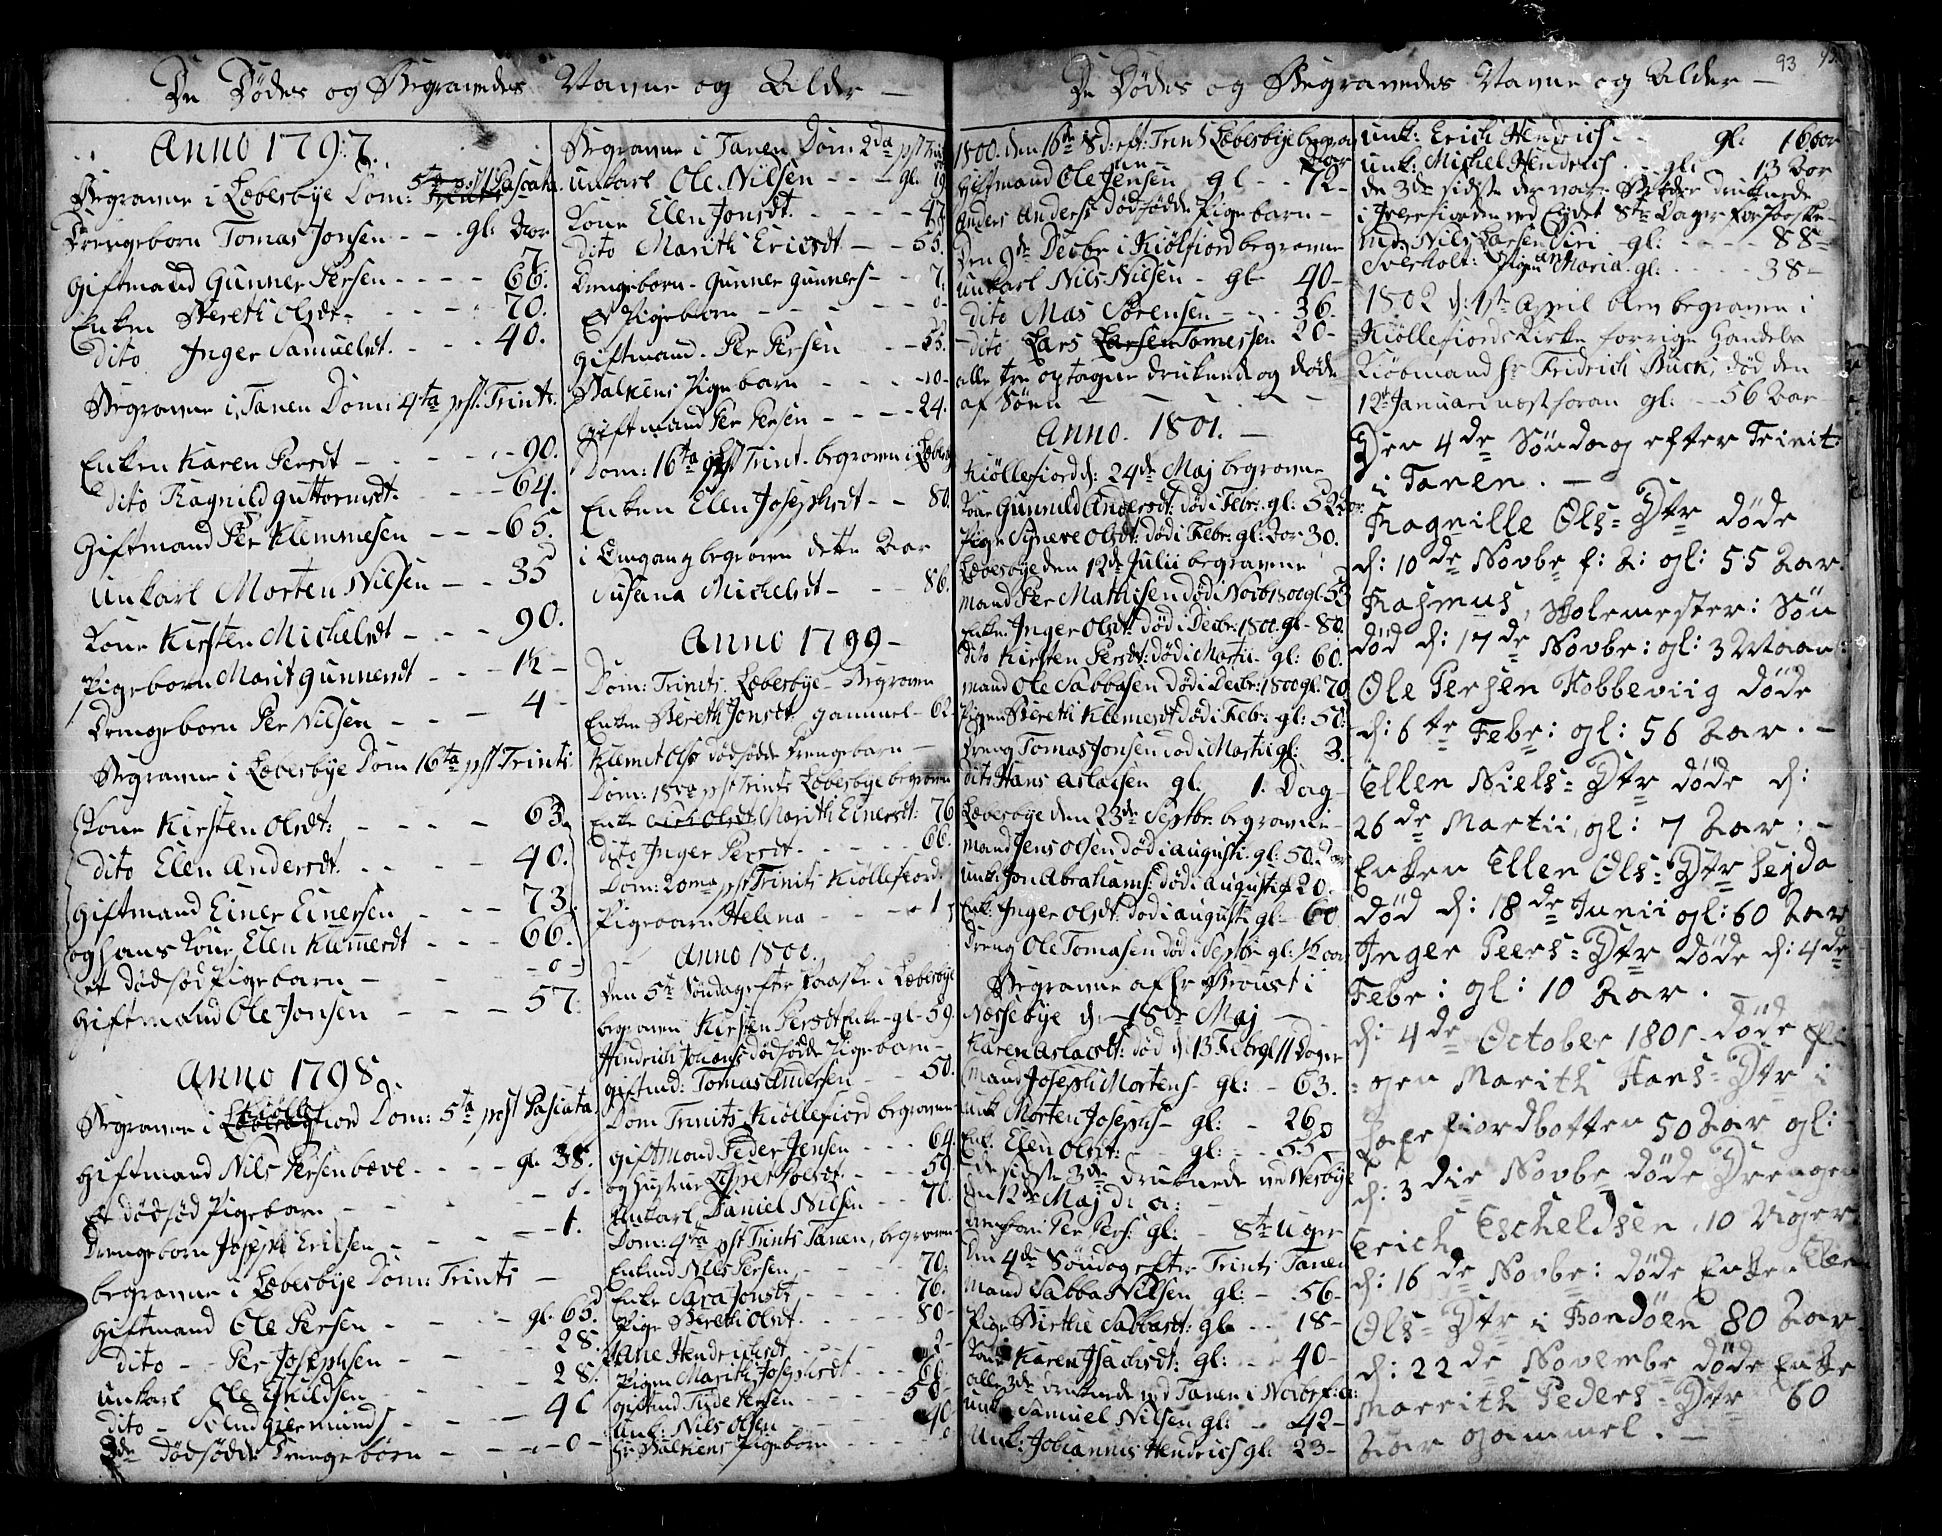 De Dødes og Begravedes Navne og Alder —
Anno 1797.
Begravne i Læbesbye Dom: 5ta post Pascat:
Drengeborn Tomas Jonsen - - - gl: Aar 7.
Giftmand Gunner Persen - - - - 66.
Enken Bereth Olsdt. - - - - 70.
dito Inger Samuelsdt. - - - 40.
Begravne i Tanen Dom: 4ta pst. Trinit:
Enken Karen Persdt - - - - 90.
dito Ragnild Guttormsdt. - - - 64.
Giftmand Per Klemmesen - - - 65.
Unkarl Morten Nilsen - - - 35
Kone Kirsten Michelsdt - - - 90.
Pigeborn Marit Gunnersdt - - - 1½ -
Drengeborn Per Nilsen - - - 4 -
Begravne i Læbesbye Dom 16ta pst Trinit:
Kone Kirsten Olsdt: - - - - 63.
dito Elen Andersdt. - - - - 40.
Giftmand Einer Einersen - - - 73.
og hans Kone Elen Klemetsdt - - - 66.
et dødfød Pigebarn - - - - 0 -
Giftmand Ole Jonsen - - - - 57.
Anno 1798.
Begravne i Kiøllefiord Dom: 5ta post Pascata.
Giftmand Nils Persen - - - - gl. 38.
Et dødfød Pigebarn - - - - 0.
Drengeborn Joseph Erichsen - - - - 1.
begravne i Læbesbye Dom: Trinits -
Giftmand Ole Persen - - - - gl. 65.
dito - - Per Josephsen - - - 28.
Unkarl Ole Eskildsen - - - 28.
dito - - - - 40
2de Dødfødde Drengebørn - - - - 0 -
Begravne i Tanen Dom 2da pst Trin
Unkarl Ole Nilsen - - - gl. 19
Kone Elen Jonsdt. - - - - 47
dito Marith Ericsdt - - - 55.
Drengeborn Gunner Gunners - - 7.
Et Pigeborn - - - - 0 -
Giftmand. Per Persen - - 55.
Pigebarn - - - - 10 -
Giftmand Per Persen - - - - 24.
Dom: 16ta pst Trint. begraven i Læbesb
Enken Ellen Josephsdt - - 80.
i Omgang begraven dette Aar
Susana Michelsdt - - - 86.
Anno 1799 -
Dom: Trinits. Læbesbye - Begraven
Enken Bereth Jonsdt. gammel - 62.
Klemet Ols dødfødde Drengebarn -
Dom: 18va pst Trints Læbesbye begraven
Enke Marith Einersdt: 76
dito Inger Persdt. - - - 66.
Dom: 20ma pst Trinits Kiøllefiord:
Pigebarn Helena - - - - 1
Anno 1800.
Den 5te Søndag efter Paaske i Læbesbye
begraven Kirsten Persdt Enke - gl - 59.
Hindrich Johans dødfødde Pigebarn -
giftmd: Tomas Andersen - - 50.
Dom Trinits Kiøllefiord begravne
Giftmand Peder Jensen - - - 64.
og hustrue Lispet - - - 59.
Unkarl Daniel Nilsen - - 70.
Dom: 4ta pst Trinits Tanen, begravne
Enkmd Nils Persen - - - 70.
Enke Sara Jonsdt - - - 76.
Pige Bereth Olsdt. - - - 80 -
Jane Hendrichsdt - - - 2 -
Pigen Marith Josephsdt - - 60.
giftmd Persen - - - 50 -
Unk: Nils Olsen - - - 40
Pigeborn - - - - 0
De Dødes og Begravedes Navne og Alder — 93
1800. den 16de Sd: eft: Trint Læbesbye begrav
Giftmand Ole Jensen gl - - 72 -
Anders Anders dødfødde Pigebarn -
Den 9de Decbr i Kiølfiord begravne
Unkarl Nils Nilsen - gl - 40 -
dito Mas Sørensen - - - 36.
dito Lars Larsen Tomessen 20 -
alle tre optagne druknede og døde
af Søen - - - -
Anno. 1801. -
Kiøllefiord d: 24de Maj begravne
Kone Gunnild Andersdt: død i Febr: gl: 52 Aar.
Pige Signeve Olsdt: død i Febr: gl: Aar 30.
Læbesbye den 12de Julii begravne
Mand Per Mathisen død i Novb 1800 gl - 53
Enken Inger Olsdt: død i Decbr: 1800. gl - 80.
dito Kirsten Persdt: død i Martii - gl: 60.
Mand Ole Sabbasen død i Decbr: 1800 gl: 70
Pigen Bereth Klemetsdt død i Febr: gl: 50:
Dreng Tomas Jonsen død i Martii gl: 3.
dito Hans Aslacsen gl. 1. Dag -
Læbesbye den 23de Septbr. begravne -
Mand Jens Olsen død i Augusti. gl: 50. Aar
Unk: Jon Abrahams: død i Augusti gl 20.
Enk: Inger Olsdt. død i Augusti gl - 60
Dreng Ole Tomasen død i Septbr gl: 1½ aar
Begravne af Hr Proust i
Næssebye d: 18de Maj -
Karen Aslacsdt: død d: 13 Febr gl 11 Dager
Mand Joseph Mortens - gl: - 63.
Unk Morten Josephs - gl: - 26
Enk: Elen Olsdt: - gl: - - 55
de sidste 3de druknede ved Nesbye
den 12te Maj d: a:
Drengborn Per Pers: gl: - 8te Uger
Den 4de Søndag efter Trints Tanen
Mand Sabba Nilsen gl: - 56 -
Pige Birthe Sabbasdt: gl - - 18 -
Kone Karen Isachsdt: gl: - 40 -
alle 3de druknede ved Tanen i Novbr f: a:
Unk: Samuel Nilsen gl: - 42 -
Unk: Johannis Hendrichs gl: 23 -
Unk: Erich Hendrichs - - gl: 16 aar
Unk: Michel Hendrich - - gl: 13 Aar
de 3de sidste der vare Brødre druknede
i Ifiorden ved Eydet 8te Dager for Paaske -
Md: Nils Larsen Siri - gl: - - - 88 -
Sverholt: Pigen Ane Maria - gl: - - - 38 -
1802 d: 1ste April blev begraven i
Kiøllefiords Kirke forrige Handels
Kiøbmand Hr Fridrich Buck, død den
12te Januari næstforan gl: - 56 Aar
Den 4de Søndag efter Trinit:
i Tanen. -
Ragnille Ols=Dtr døde
d: 10de Novbr f: A: gl: 55 Aar.
Rasmus, Skolemester: Søn
død d: 17de Novbr: gl: 3 Maan:
Ole Persen Kobbeviig døde
d: 6te Febr: gl: 56 Aar. -
Ellen Niels=Dtr døde d:
26de Martii, gl: 7 Aar: -
Enken Ellen Ols=Dtr Seyda
død d: 18de Junii gl: 60 Aar
Inger Peers=Dtr døde d: 4de
Febr: gl: 10 Aar. -
d: 4de October 1801. døde Pi
=gen Marith Hans=Dtr i
fiordbotten 50 Aar gl: -
d: 3die Novbr døde Drengen
Erich Escheldsen, 10 Uger.
d: 16de Novbr: døde Enken Ellen
Ols=Dtr i Hondøen 80 Aar.
d: 22de Novembr døde Enke
Marrith Peders=Dtr 60
Aar gammel. -